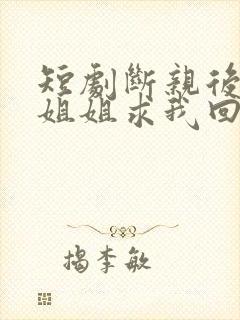 短劇斷親後
姐姐求我回
揭李敏